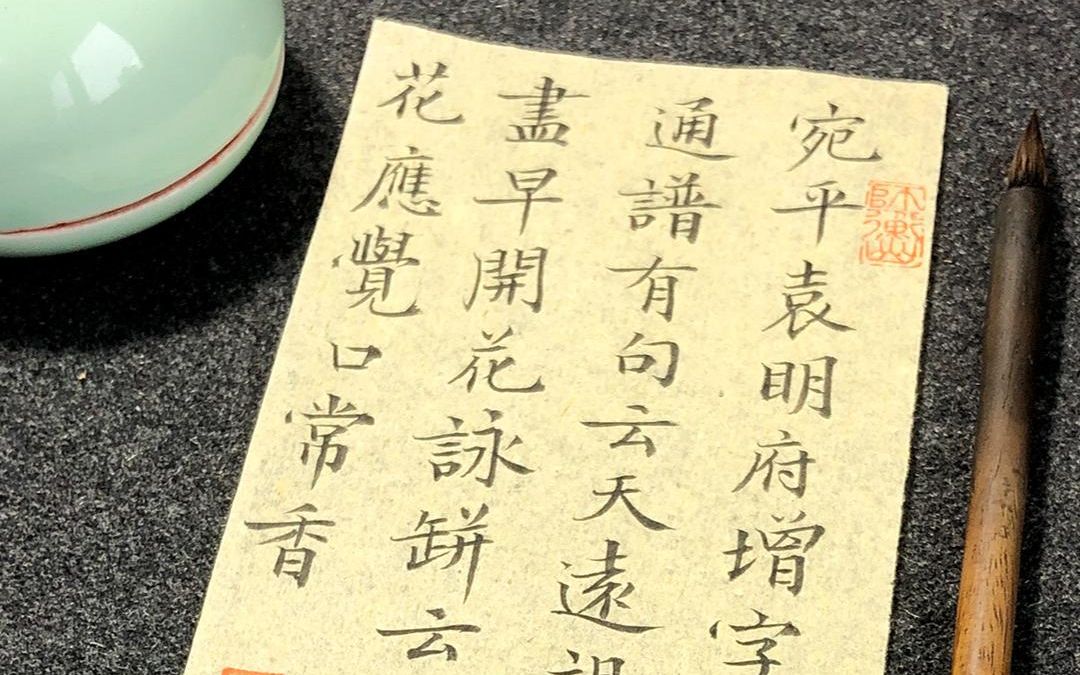 宛平袁明府增字
通譜有句云天遠
盡早開花詠缾云
花應覺口常香